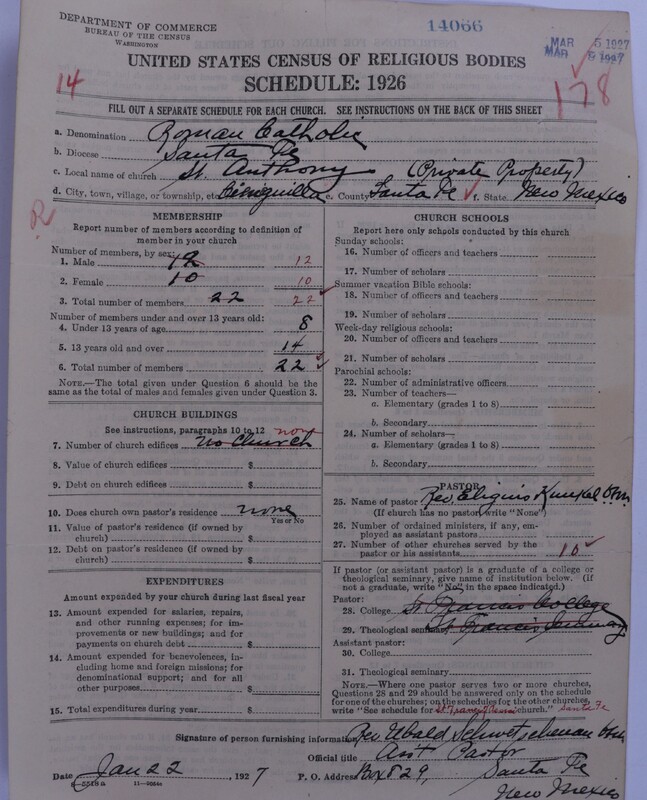 DEPARTMENT OF COMMERCE
BUREAU OF THE CENSUS
WASHINGTON
14066
MAR 5 1927
MAR 1927
UNITED STATES CENSUS OF RELIGIOUS BODIES
SCHEDULE: 1926
14
178
FILL OUT A SEPARATE SCHEDULE FOR EACH CHURCH. SEE INSTRUCTIONS ON THE BACK OF THIS SHEET
a. Denomination Roman Catholic
b. Diocese Santa Fe
c. Local name of church St. Anthony (Private Property)
d. City, town, village, or township, etc. e. County Santa Fe f. State New Mexico
R
MEMBERSHIP
Report number of members according to definition of member in your church
Number of members, by sex:
1. Male 12 12
2. Female 10 10
3. Total number of members 22 22
Number of members under and over 13 years old:
4. Under 13 years of age 8
5. 13 years old and over 14
6. Total number of members 22
NOTE.—The total given under Question 6 should be the same as the total of males and females given under Question 3.
CHURCH BUILDINGS
See instructions, paragraphs 10 to 12 none
7. Number of church edifices no Church
8. Value of church edifices $
9. Debt on church edifices $
10. Does church own pastor's residence none
Yes or No
11. Value of pastor's residence (if owned by church) $
12. Debt on pastor's residence (if owned by church) $
EXPENDITURES
Amount expended by your church during last fiscal year
13. Amount expended for salaries, repairs, and other running expenses; for improvements or new buildings; and for payments on church debt $
14. Amount expended for benevolences, including home and foreign missions; for denominational support; and for all other purposes $
15. Total expenditures during year $
CHURCH SCHOOLS
Report here only schools conducted by this church
Sunday schools:
16. Number of officers and teachers
17. Number of scholars
Summer vacation Bible schools:
18. Number of officers and teachers
19. Number of scholars
Week-day religious schools:
20. Number of officers and teachers
21. Number of scholars
Parochial schools:
22. Number of administrative officers
23. Number of teachers—
a. Elementary (grades 1 to 8)
b. Secondary
24. Number of scholars—
a. Elementary (grades 1 to 8)
b. Secondary
PASTOR
25. Name of pastor Rev. Eligius Kunkel O.F.M.
(If church has no pastor, write "None")
26. Number of ordained ministers, if any, employed as assistant pastors
27. Number of other churches served by the pastor or his assistants 10
If pastor (or assistant pastor) is a graduate of a college or theological seminary, give name of institution below. (If not a graduate, write "No" in the space indicated.)
Pastor:
28. College St. Francis College
29. Theological seminary St. Francis Seminary
Assistant pastor:
30. College
31. Theological seminary
NOTE.—Where one pastor serves two or more churches, Questions 28 and 29 should be answered only on the schedule for one of the churches; on the schedules for the other churches, write "See schedule for church." Santa Fe
Signature of person furnishing information Rev. Ubald
Official title Asst Pastor
Date Jan 22, 1927 P. O. Address Box 829, Santa Fe
New Mexico